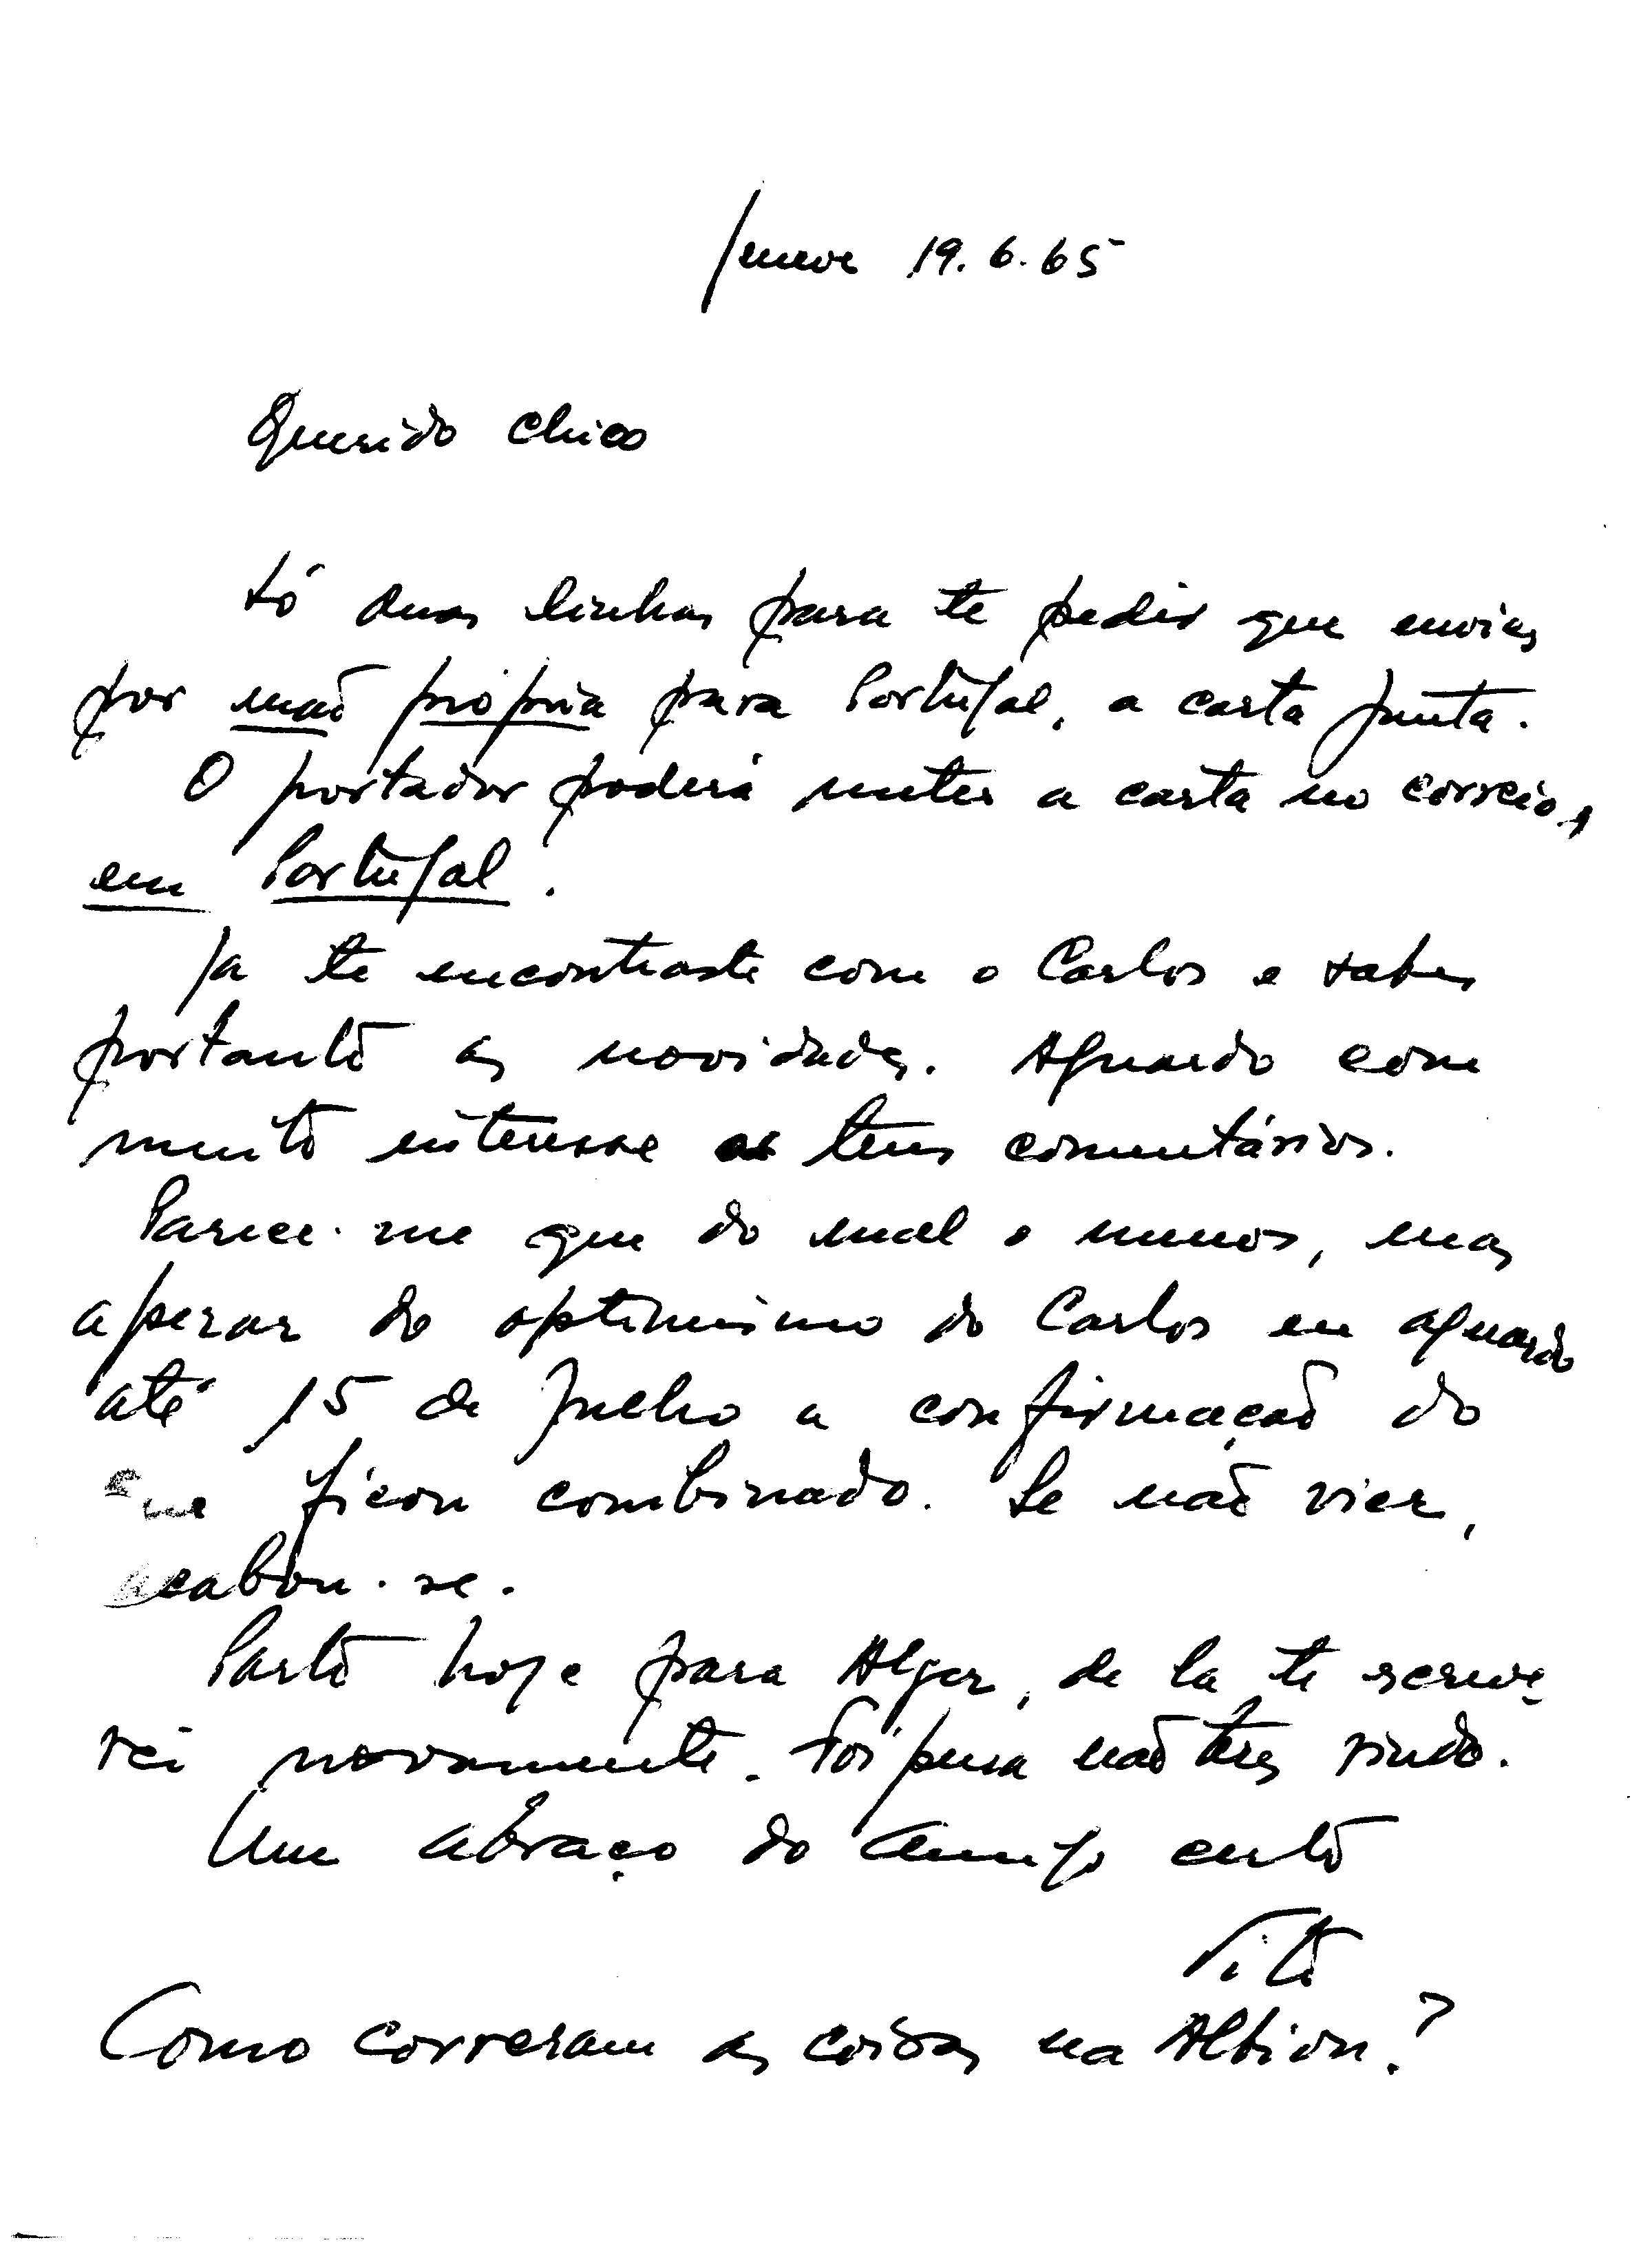 Geneve 19.6.65
Querido Chico
Só duas linhas para te pedir que envies
por mão própria para Portugal, a carta junta.
O portador poderá meter a carta no correio,
em Portugal.
Ja te encontraste com o Carlos e sabes
portanto as novidades. Aguardo com
muito interesse os teus comentários.
Parece-me que do mal o menos, mas
apezar do optimismo do Carlos eu aguardo
até 15 de Julho a confirmação do
que ficou combinado. Se não vier,
acabou-se.
Parto hoje para Alger, de la te screve
rei novamente. Foi pena não teres vindo.
Um abraço do Amigo certo
Tito
Como correram as coisas na Albion?